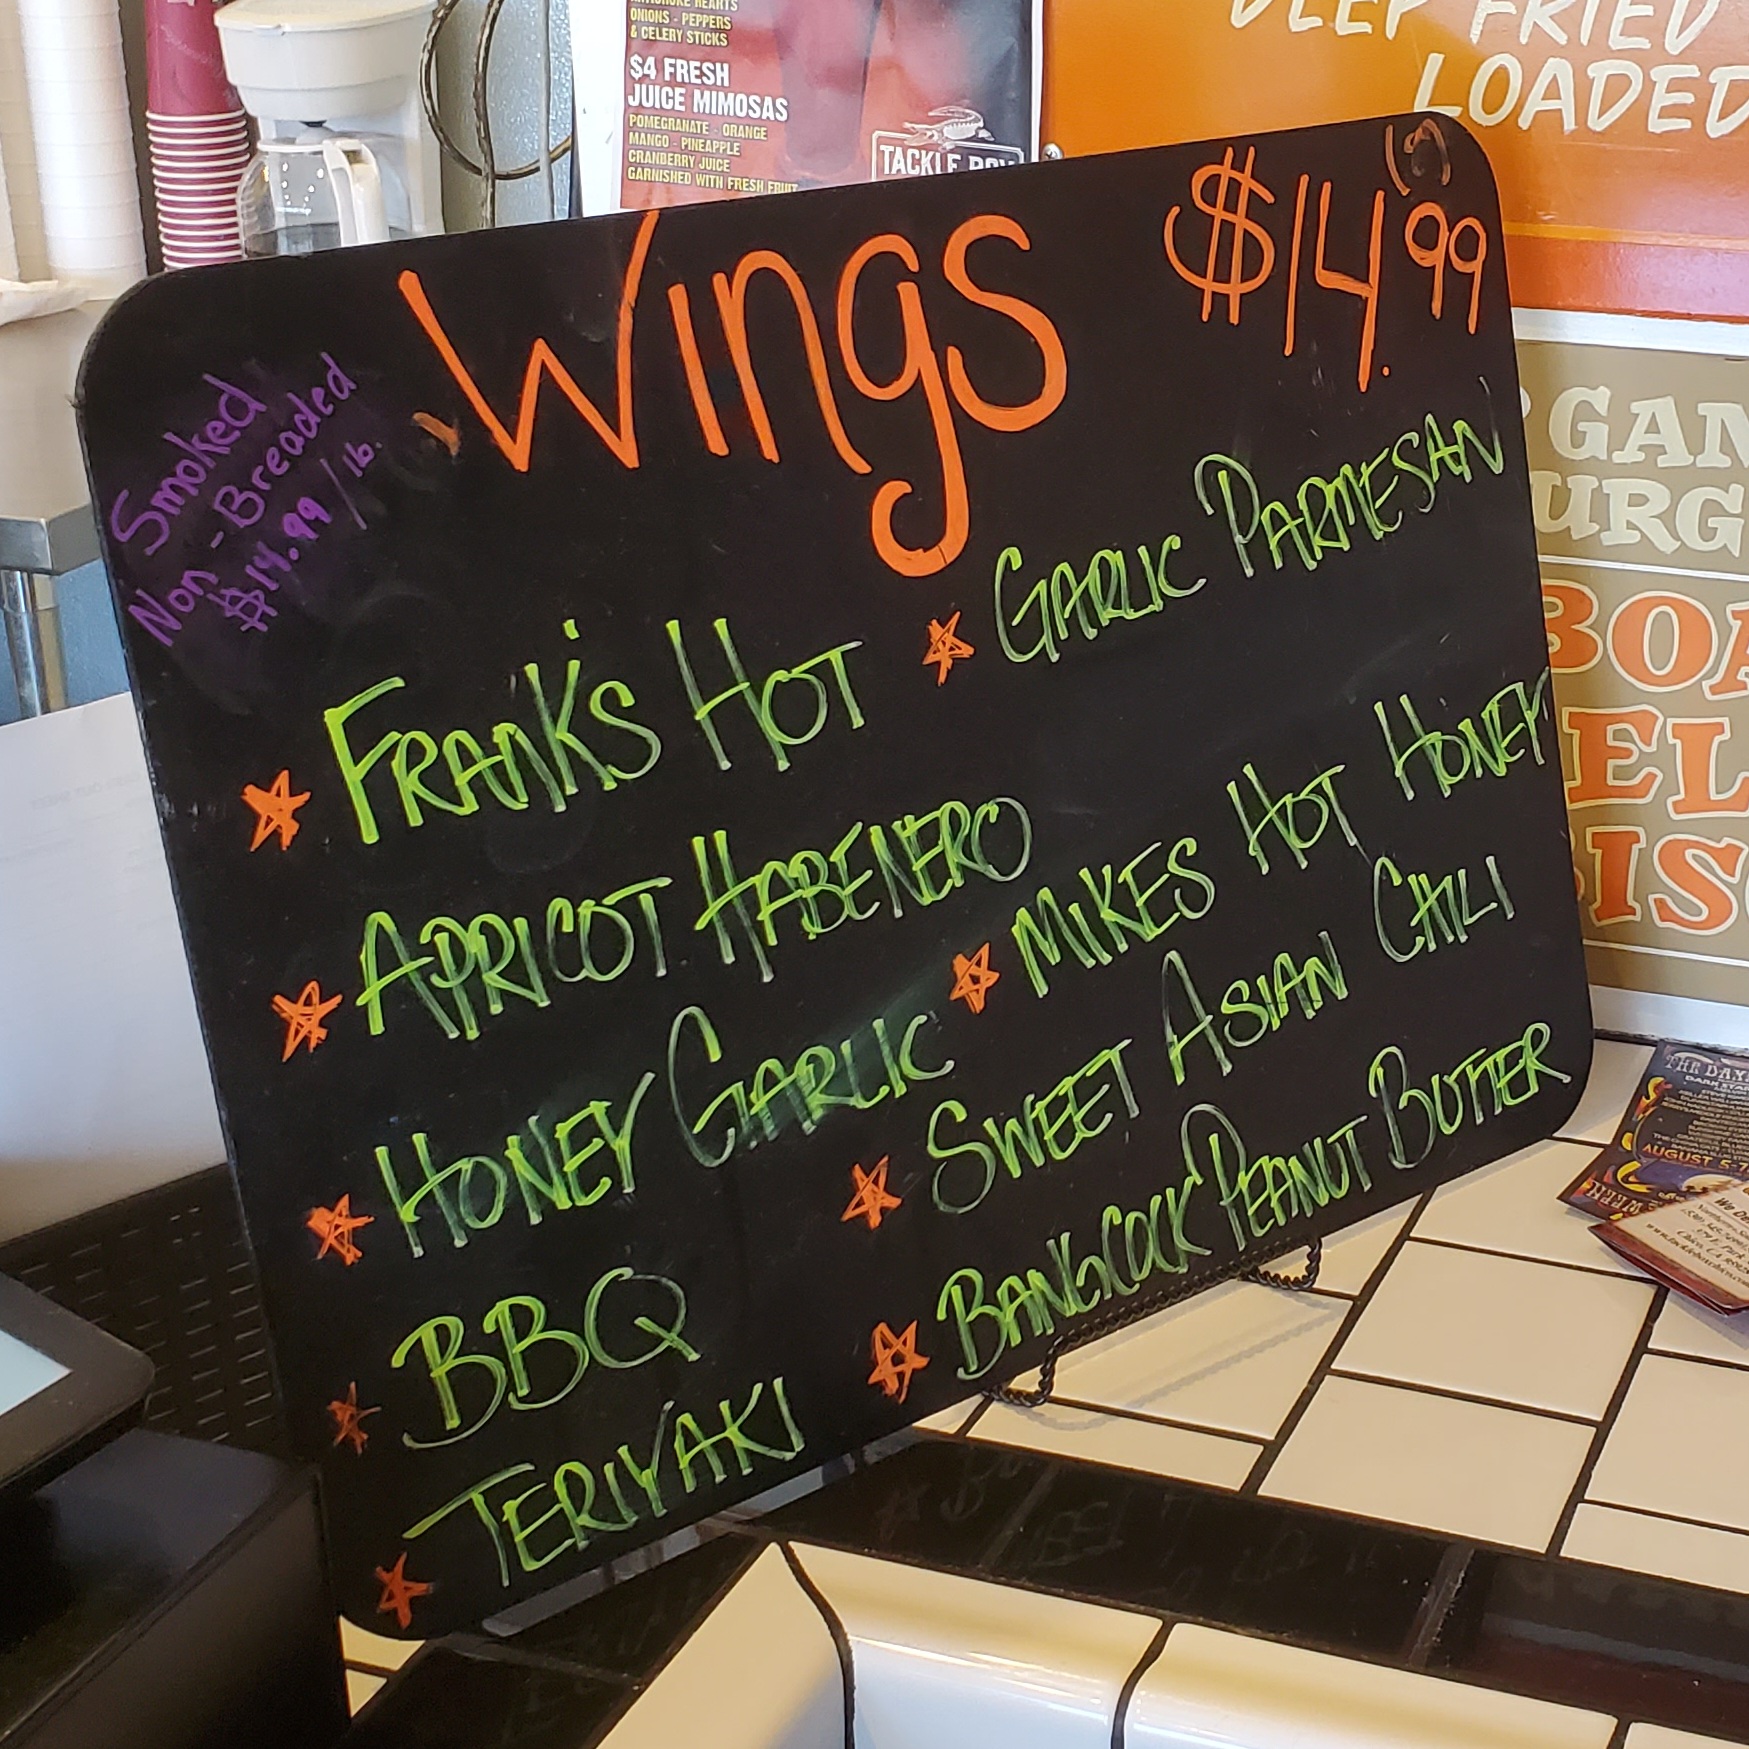 ONIONS - PEPPERS
& CELERY STICKS
$4 FRESH
JUICE MIMOSAS
POMEGRANATE - ORANGE
MANGO - PINEAPPLE
CRANBERRY JUICE
GARNISHED WITH FRESH FRUIT
TACKLE BOX
DEEP FRIED
LOADED
Wings $14.99
Smoked
Non-Breaded
$14.99/lb.
FRANK'S HOT
APRICOT HABENERO
HONEY GARLIC
BBQ
TERIYAKI
GARLIC PARMESAN
MIKES HOT HONEY
SWEET ASIAN CHILI
BANGCOCK PEANUT BUTTER
AUGUST 5-7